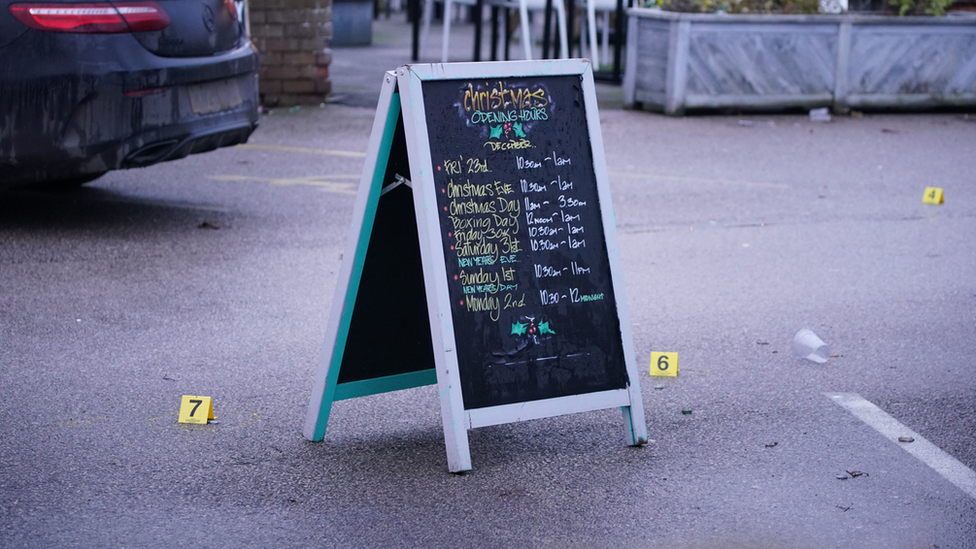 Christmas
OPENING HOURS
DECEMBER..
FRI' 23rd 10.30am - 1am
Christmas Eve 10.30am - 1am
Christmas Day 11am - 3.30pm
Boxing Day 12noon - 1am
Friday 30th 10.30am - 1am
Saturday 31st 10.30am - 1am
NEW YEAR'S EVE
Sunday 1st 10.30am - 11pm
NEW YEAR'S DAY
Monday 2nd 10.30 - 12 MIDNIGHT
4
6
7